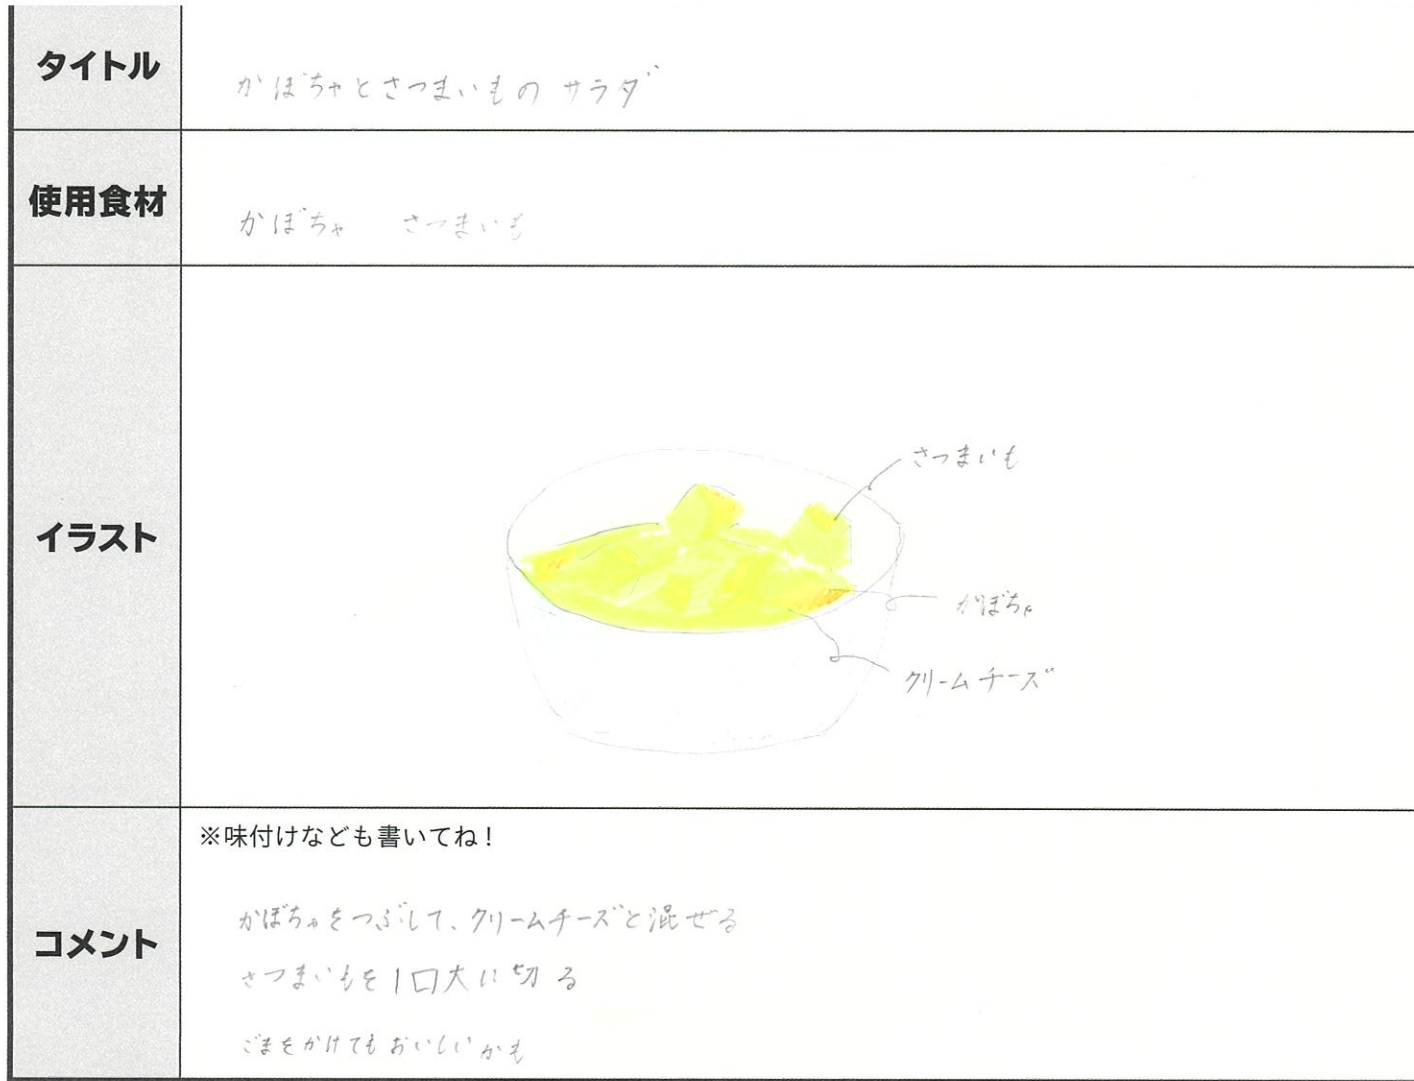 タイトル
かぼちゃとさつまいもの サラダ
使用食材
かぼちゃ さつまいも
イラスト
さつまいも
かぼちゃ
クリームチーズ
コメント
※味付けなども書いてね!
かぼちゃをつぶして、クリームチーズと混ぜる
さつまいもを1口大に切る
ごまをかけてもおいしいかも